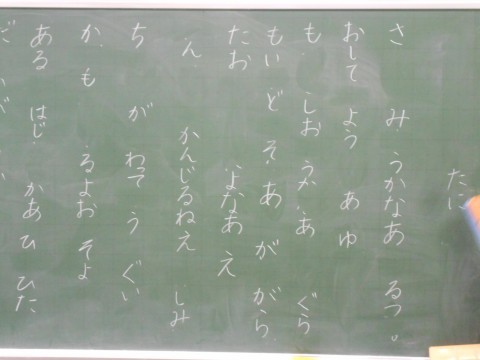 たに
さ み うかなあ るつ。
おして よう あゆ
も しお うか あ ぐら
もいど そあ が がら
たお よなあ え
ん かんじるねえ しみ
ち が わて う ぐい
か も るよお そよ
ある はじ かあ ひ ひた